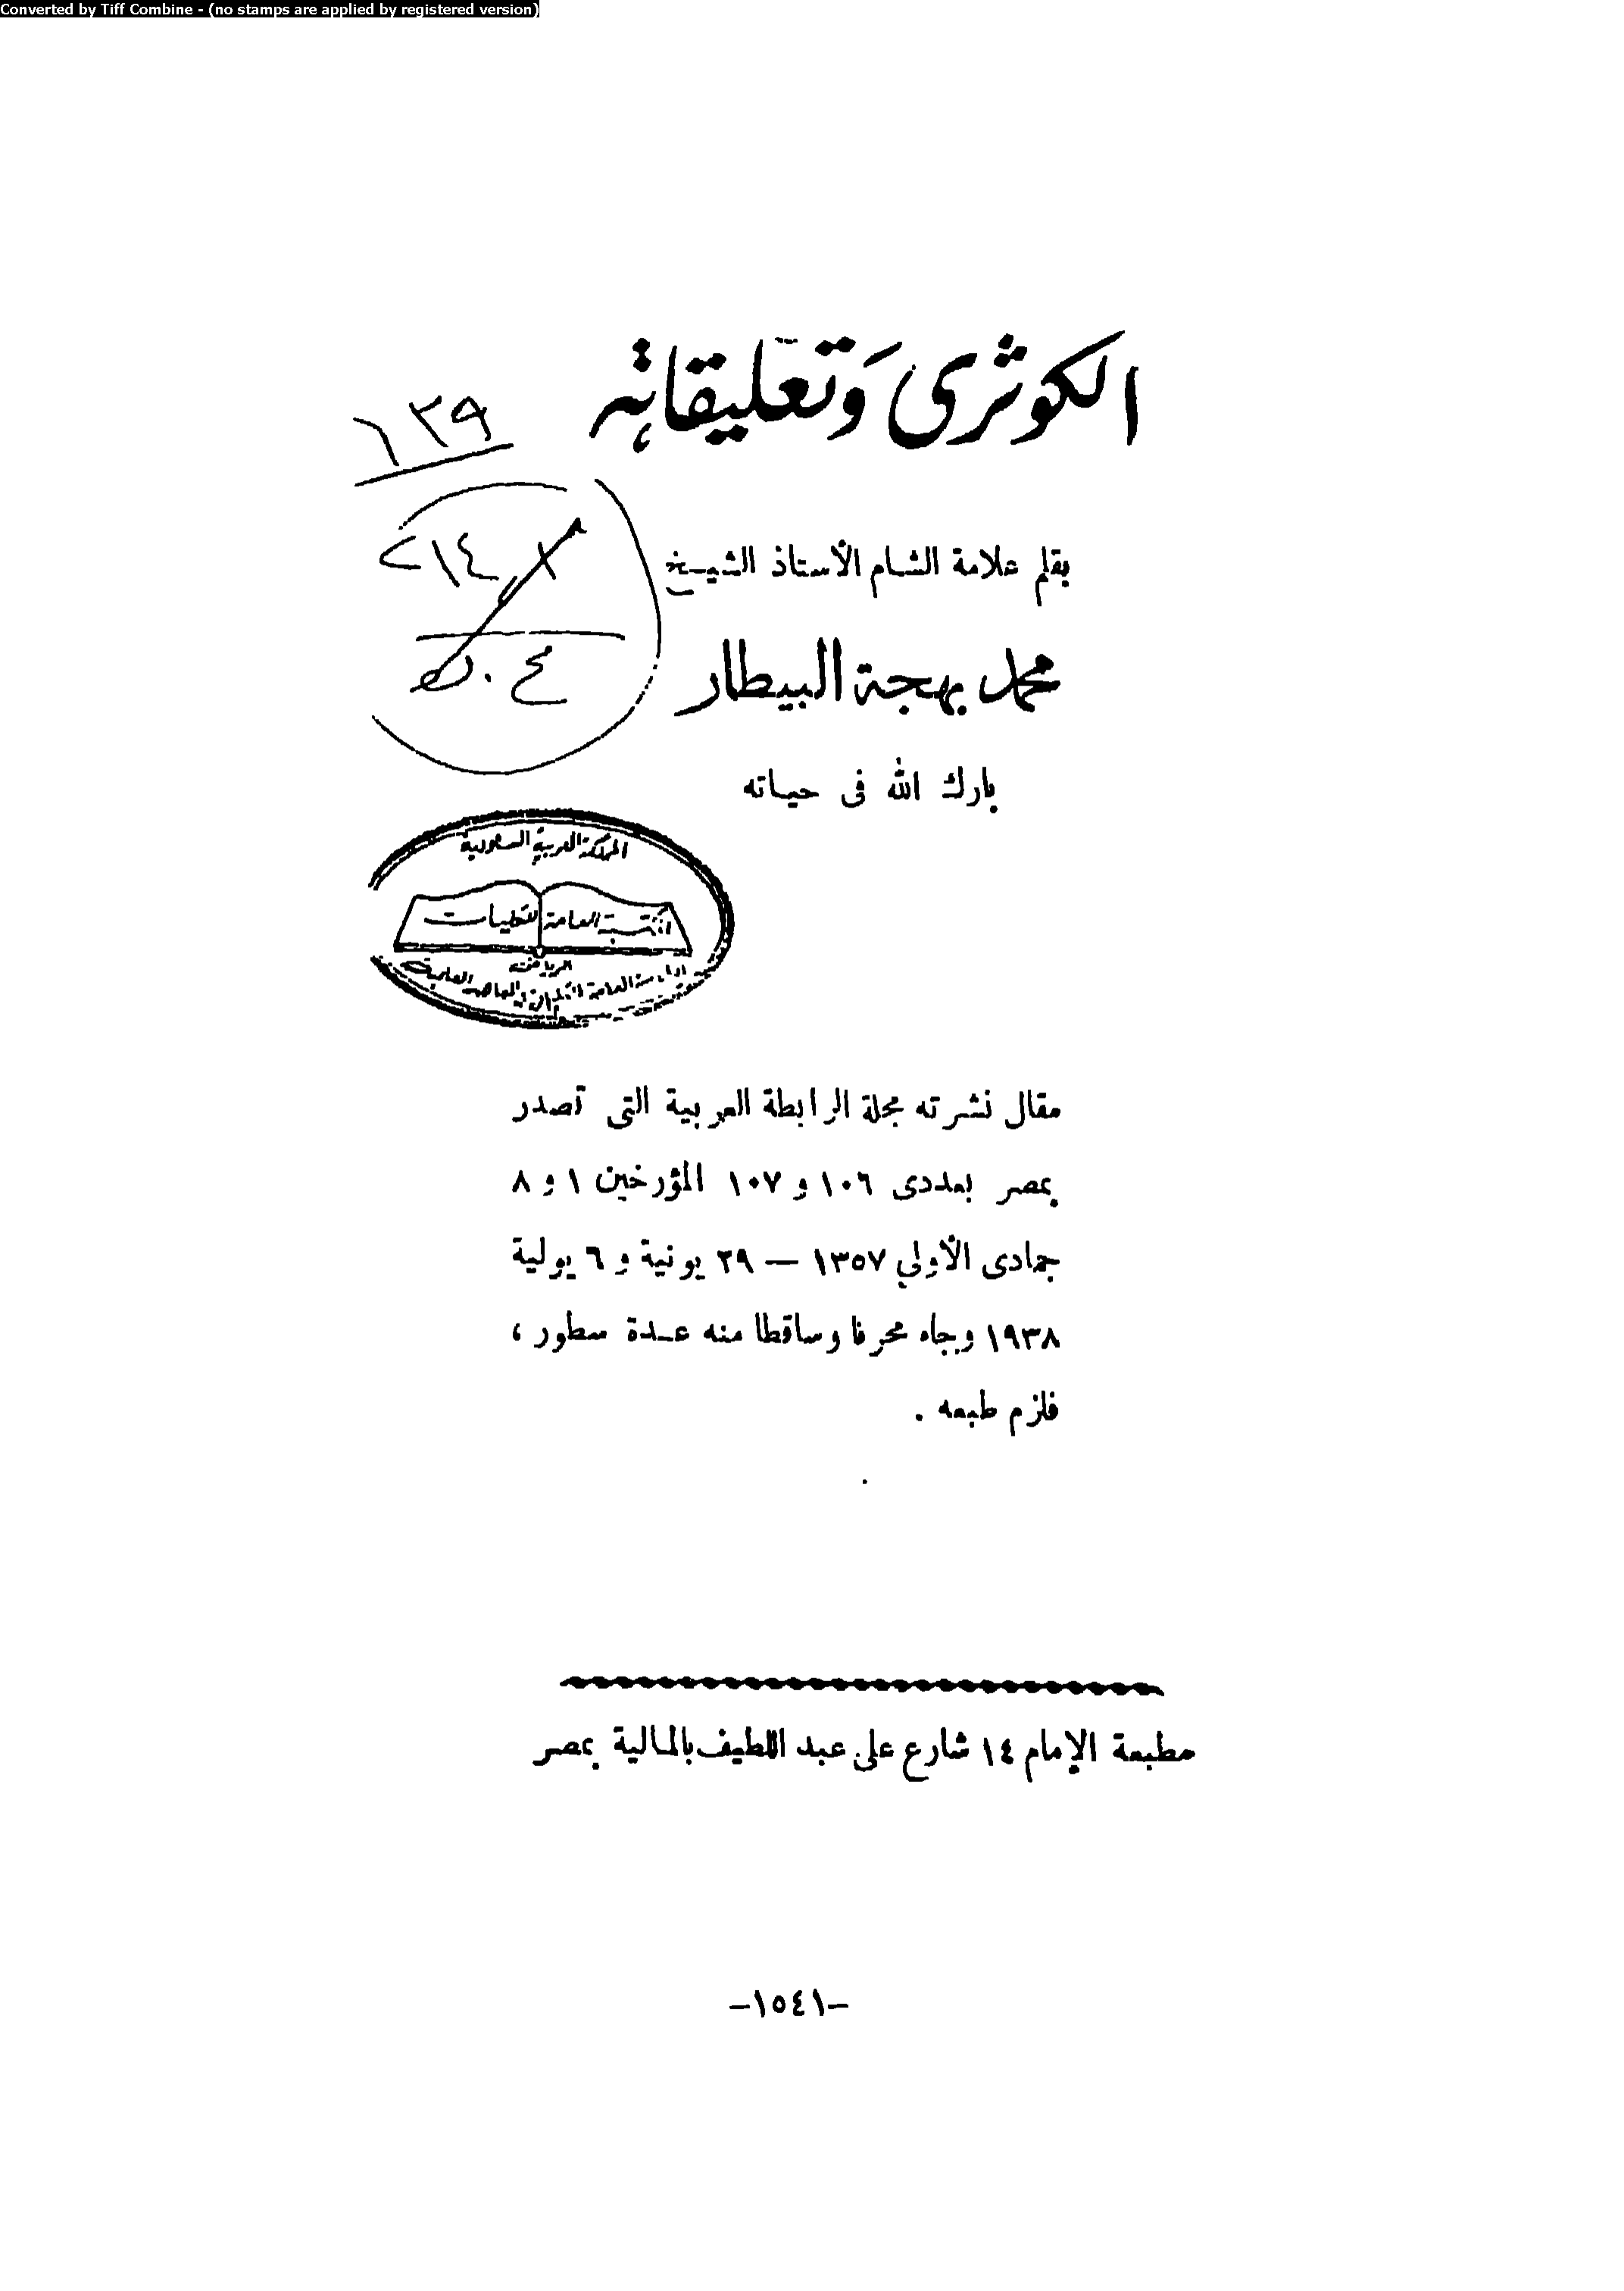 Converted by Tiff Combine - (no stamps are applied by registered version)
الكوثرى وَتعليقاته
١٢٩
بقلم علامة الشام الأستاذ الشيـخ
٢١٤
محمد بهجة البيطار
بارك الله فى حياته
المملكة العربية السعودية
المكتبة العامة للتعليم البنات
الرياض
مقال نشرته مجلة الرابطة العربية التى تصدر
بمصر بعددى ١٠٦ و ١٠٧ المؤرخين ١ و ٨
جمادى الأولي ١٣٥٧ — ٢٩ يونية و ٦ يولية
١٩٣٨ وجاء محرفا وساقطا منه عـدة سطور ،
فلزم طبعه .
مطبعة الإمام ١٤ شارع على عبد اللطيف بالمالية بمصر
-١٥٤١-